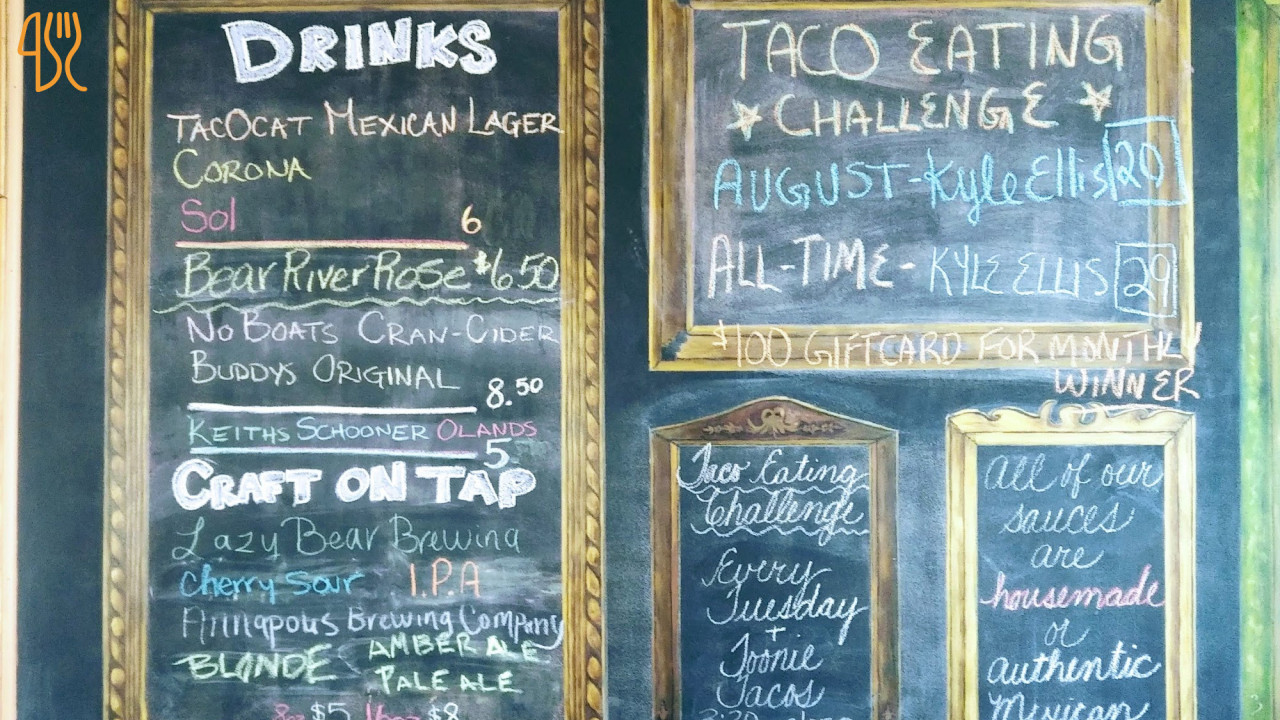 DRINKS
TACOCAT MEXICAN LAGER
CORONA
Sol 6
Bear River Rose $6.50
NO BOATS CRAN-CIDER
BUDDYS ORIGINAL
8.50
KEITHS SCHOONER OLANDS
5
CRAFT ON TAP
Lazy Bear Brewing
Cherry Sour I.P.A
Annapolis Brewing Company
BLONDE AMBER ALE
PALE ALE
8oz $5 16oz $8
TACO EATING
CHALLENGE
AUGUST-Kyle Ellis 20
ALL-TIME- KYLE ELLIS 29
$100 GIFTCARD FOR MONTHLY
WINNER
Taco Eating
Challenge
Every
Tuesday
+
Toonie
Tacos
All of our
sauces
are
housemade
or
authentic
Mexican